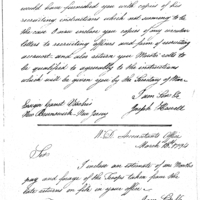 would have furnished you with copies of his
recruiting instructions which not seeming to be
the case I now enclose you copies of my circular
letters to recruiting officers and form of recruiting
account, and also return your Muster rolls to
be qualified agreeably to the instructions
which will be given you by the Secretary of War
I am Sir &c
Joseph Howell
Ensign
New Brunswick New Jersey
W.D. Accountants Office
March
Sir
I enclose an estimate of six Months
pay and forage of the Troops taken from the
late returns on file in your office